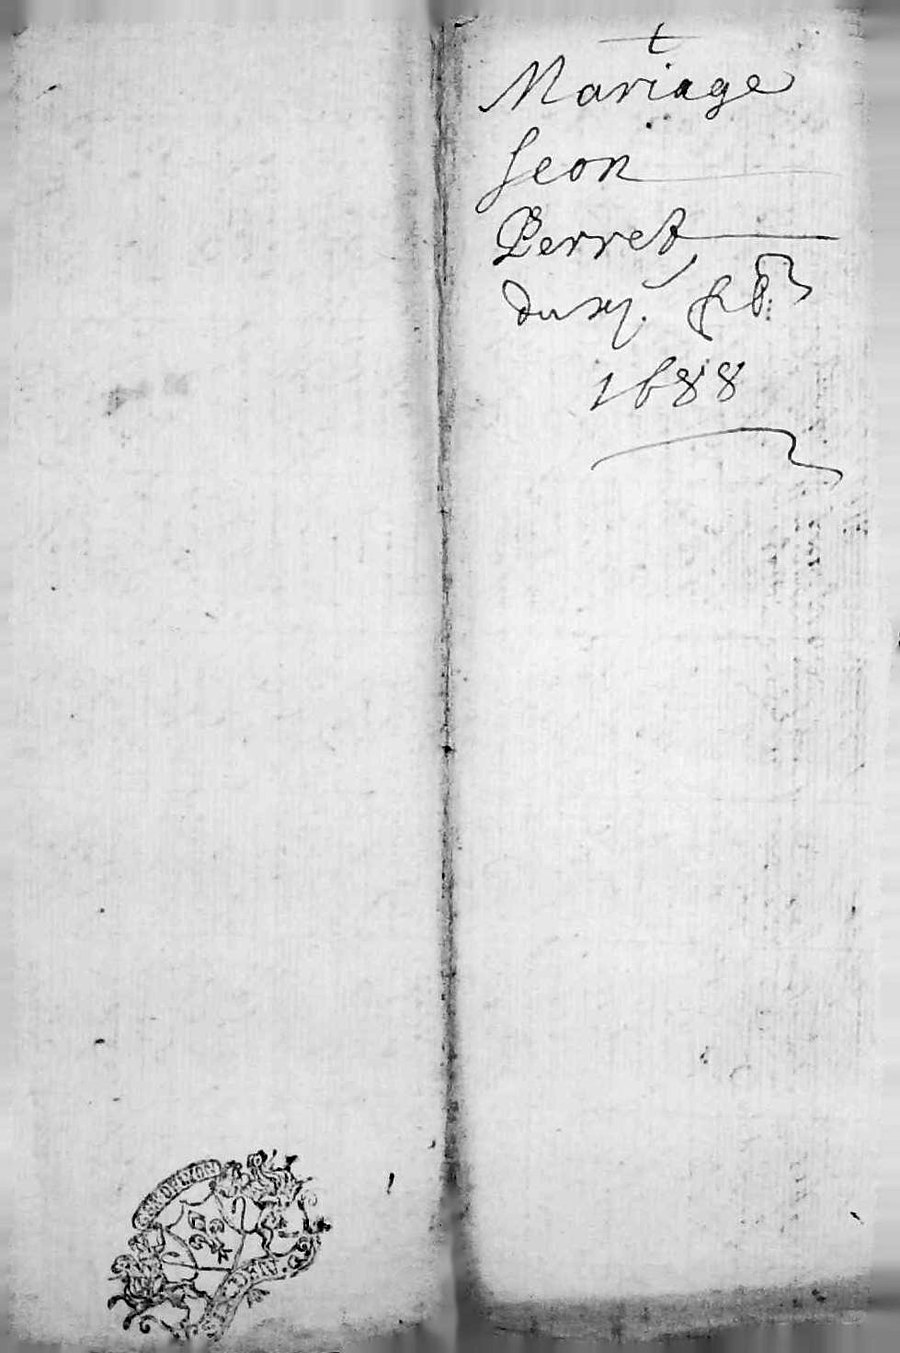 t
Mariage
Jeon
Perret
du xj. feb.
1688